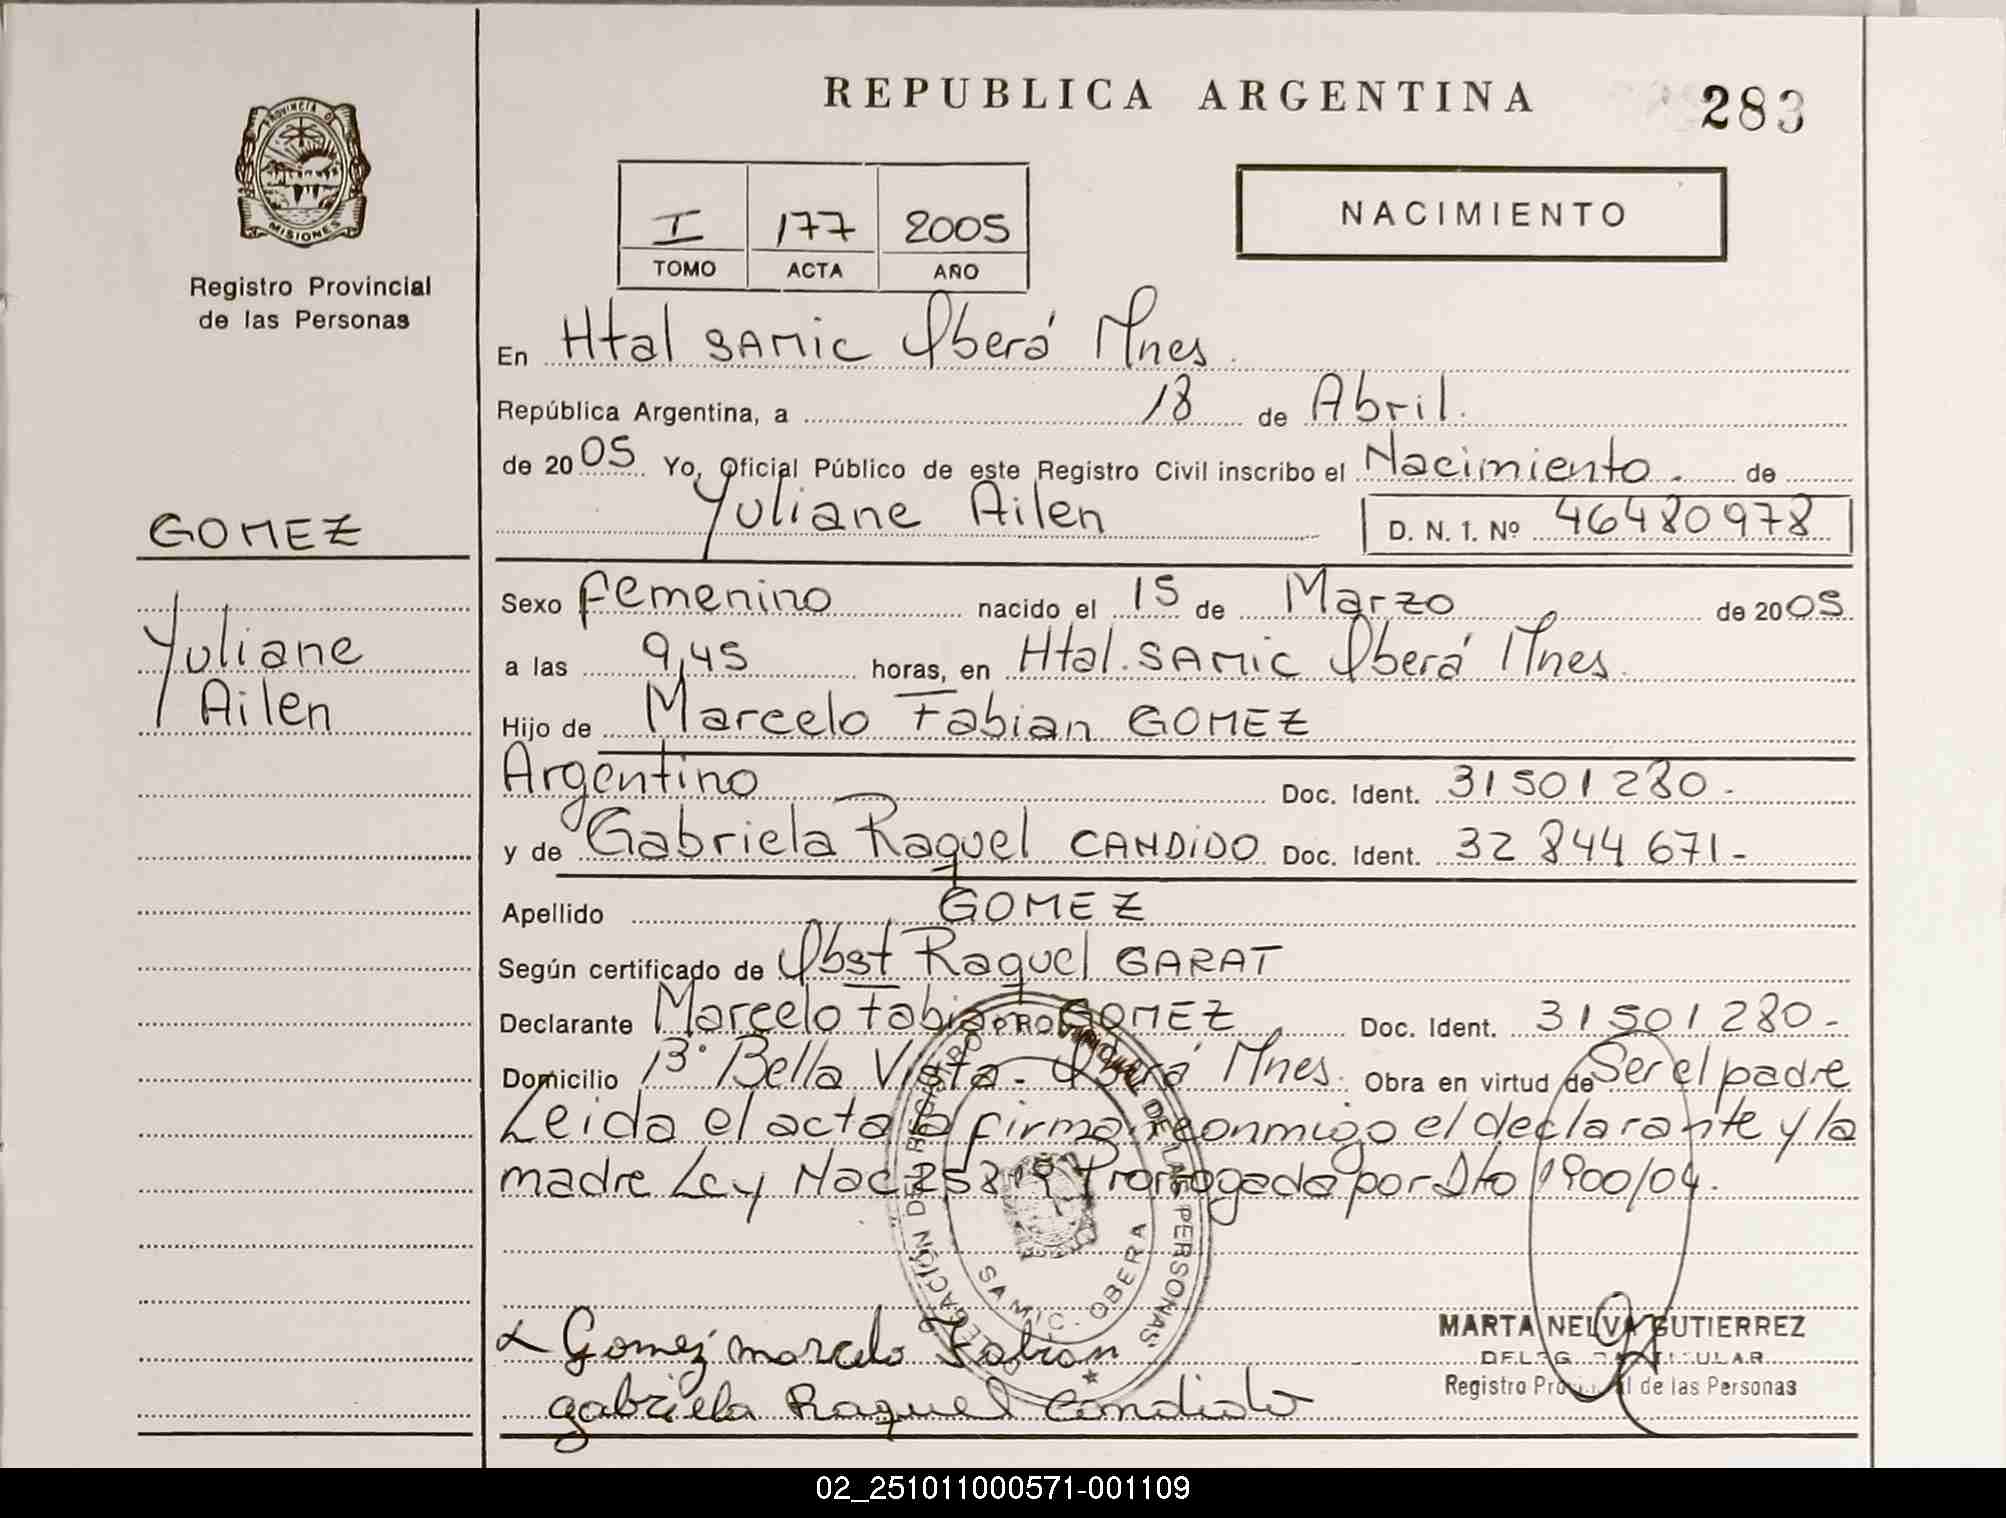 REPUBLICA ARGENTINA
283
PROVINCIA DE
MISIONES
Registro Provincial
de las Personas
I 177 2005
TOMO ACTA AÑO
NACIMIENTO
En Htal SAMIC Oberá Mnes.
República Argentina, a 18 de Abril.
de 2005 Yo, Oficial Público de este Registro Civil inscribo el Nacimiento. de
Yuliane Ailen D. N. I. Nº 46480978
GOMEZ
Yuliane
Ailen
Sexo femenino nacido el 15 de Marzo de 2005
a las 9,45 horas, en Htal. SAMIC Oberá Mnes.
Hijo de Marcelo Fabian GOMEZ
Argentino Doc. Ident. 31501280.-
y de Gabriela Raquel CANDIDO Doc. Ident. 32844671-
Apellido GOMEZ
Según certificado de Obst Raquel GARAT
Declarante Marcelo Fabian GOMEZ Doc. Ident. 31501280-
Domicilio Bº Bella Vista. Oberá Mnes. Obra en virtud de Ser el padre
Leida el acta la firman conmigo el declarante y la
madre Ley Nac 25819 Prorrogada por Dto 1900/04.
DELEGACIÓN DE REGISTRO PROVINCIAL DE LAS PERSONAS
SAMIC. OBERA
Gomez marcelo Fabian
gabriela Raquel Candido
MARTA NELVA GUTIERREZ
Registro Provincial de las Personas
02_251011000571-001109